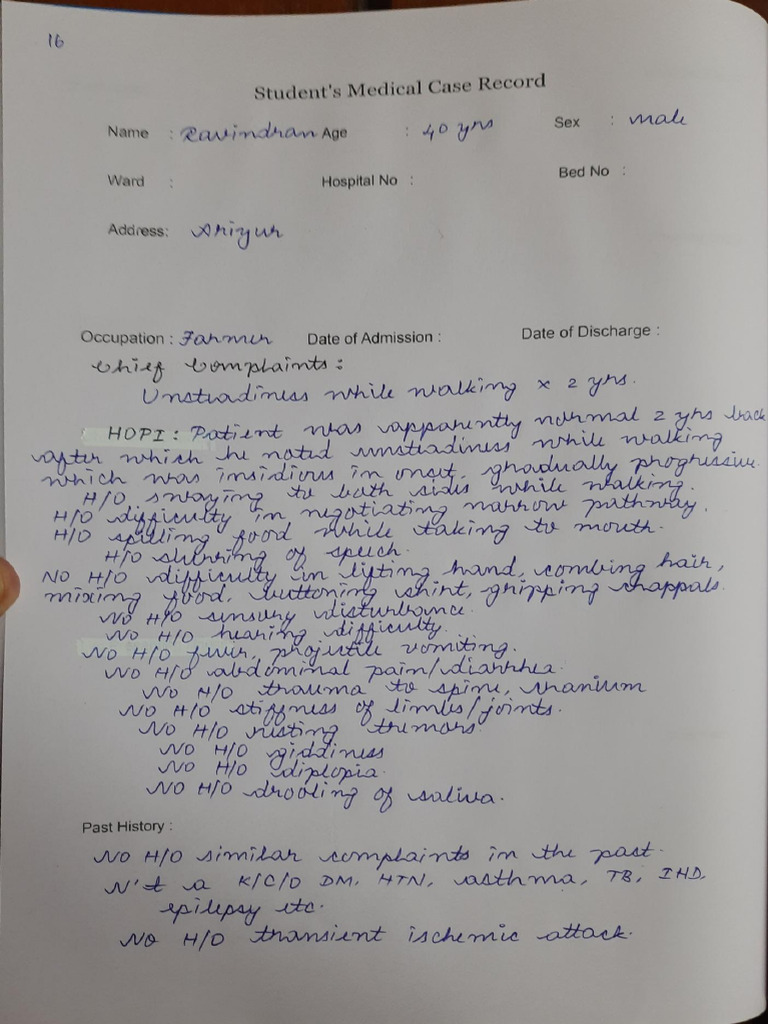 16
Student's Medical Case Record
Name : Ravindran Age : 40 yrs Sex : male
Ward : Hospital No : Bed No :
Address: Ariyur
Occupation : Farmer Date of Admission : Date of Discharge :
Chief Complaints :
Unsteadiness while walking x 2 yrs.
HOPI : Patient was apparently normal 2 yrs back
after which he noted unsteadiness while walking
which was insidious in onset, gradually progressive.
H/O swaying to both sides while walking.
H/O difficulty in negotiating narrow pathway.
H/O spilling food while taking to mouth.
H/O slurring of speech.
NO H/O difficulty in lifting hand, combing hair,
mixing food, buttoning shirt, gripping chappals.
NO H/O sensory disturbance.
NO H/O hearing difficulty.
NO H/O fever, projectile vomiting.
NO H/O abdominal pain/diarrhea.
NO H/O trauma to spine, cranium
NO H/O stiffness of limbs/joints.
NO H/O resting tremors.
NO H/O giddiness
NO H/O diplopia.
NO H/O drooling of saliva.
Past History :
NO H/O similar complaints in the past.
N't a K/C/O DM, HTN, asthma, TB, IHD,
epilepsy etc.
NO H/O transient ischemic attack.